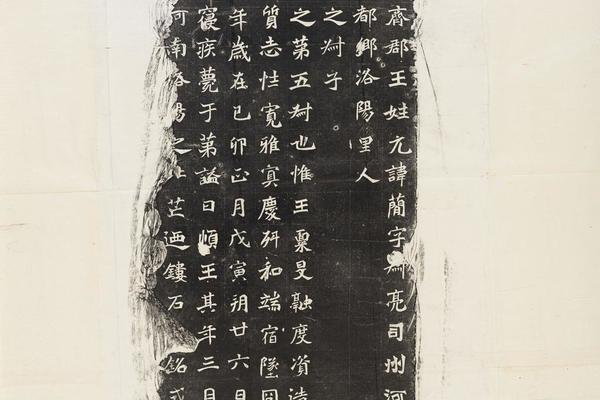 齊郡王姓元諱簡字叔亮司州河
都鄉洛陽里人
之叔子
之第五叔也惟王稟旻融度資造
質志性寬雅冥慶舛和端宿墜
年歲在己卯正月戊寅朔廿六日
寢疾薨于第謚曰順王其年三月
河南洛陽之北芒迺鏤石銘